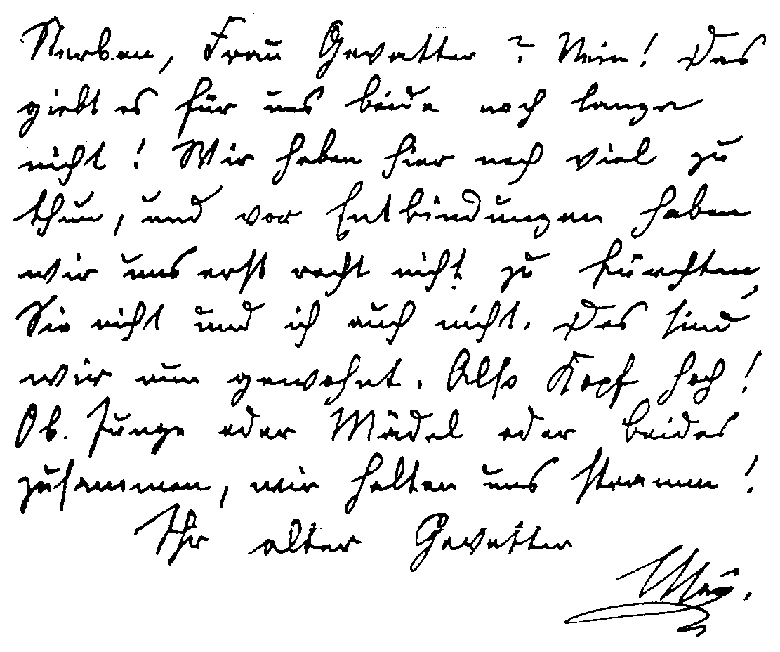 Sterben, Frau Gevatter? Nein! Das
giebt es für uns beide noch lange
nicht! Wir haben hier noch viel zu
thun, und vor Entbindungen haben
wir uns erst recht nicht zu fürchten,
Sie nicht und ich auch nicht. Das sind
wir nun gewohnt. Also Kopf hoch!
Ob Junge oder Mädel oder beides
zusammen, wir halten uns stramm!
Ihr alter Gevatter
May.